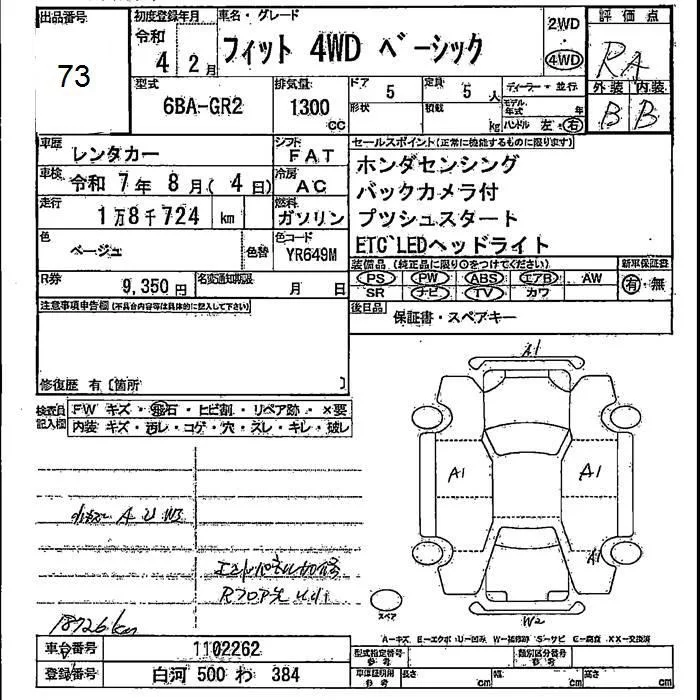 出品番号
73
初度登録年月
令和
4 2月
車名・グレード
フィット 4WD ベーシック
2WD
・
4WD
評価点
RA
外装 内装
B B
型式
6BA-GR2
排気量
1300
cc
ドア
5
定員
5 人
形状
積載
kg
ディーラー・並行
モデル年式 年
ハンドル 左・右
車歴
レンタカー
シフト
FAT
車検
令和 7年 8月( 4日)
冷房
AC
走行
1万8千724 km
燃料
ガソリン
色
ベージュ
色替
色コード
YR649M
R券
9,350円
名変通知期限
月 日
セールスポイント(正常に機能するものに限ります)
ホンダセンシング
バックカメラ付
プツシュスタート
ETC`LEDヘッドライト
装備品 (純正品に限り○をつけてください)
PS PW ABS エアB AW
SR ナビ TV カワ
新車保証書
有・無
後日品
保証書・スペアキー
注意事項申告欄(不具合内容等は具体的に記入して下さい)
修復歴 有〔箇所 〕
検査員記入欄
FW キズ・飛石・ヒビ割・リペア跡・×要
内装 キズ・汚レ・コゲ・穴・スレ・キレ・破レ
A U W3
18726km
A1
A1
A1
A1
W2
スペア
A-キズ E-エクボ U-凹み W-補修跡 S-サビ C-腐食 XX-交換済
車台番号
1102262
登録番号
白河 500 わ 384
型式指定番号
参考
類別区分番号
参考
車体証明用
参考
長さ cm
幅 cm
高さ cm